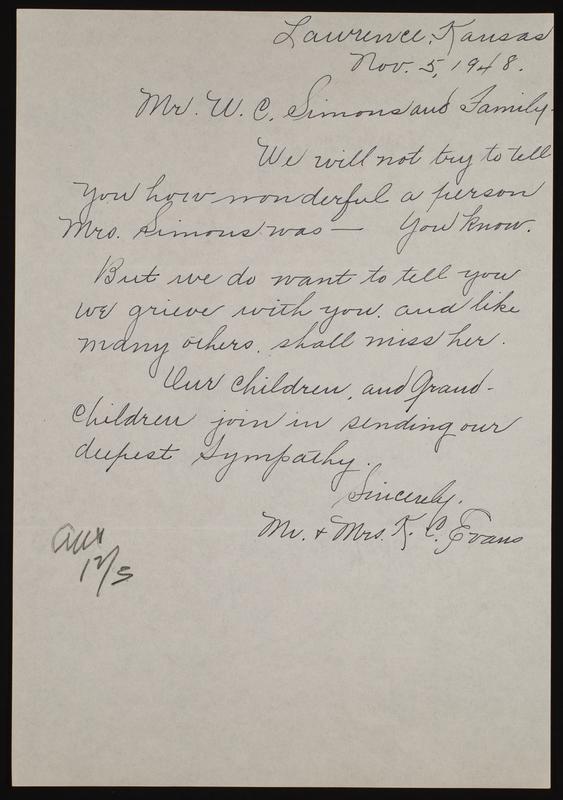 Lawrence, Kansas
Nov. 5, 1948.
Mr. W. C. Simons and Family-
We will not try to tell
you how wonderful a person
Mrs. Simons was — You know.
But we do want to tell you
we grieve with you. and like
many others. shall miss her.
Our children, and Grand-
children join in sending our
deepest Sympathy.
Sincerely,
Mr. & Mrs. K. C. Evans
12/5